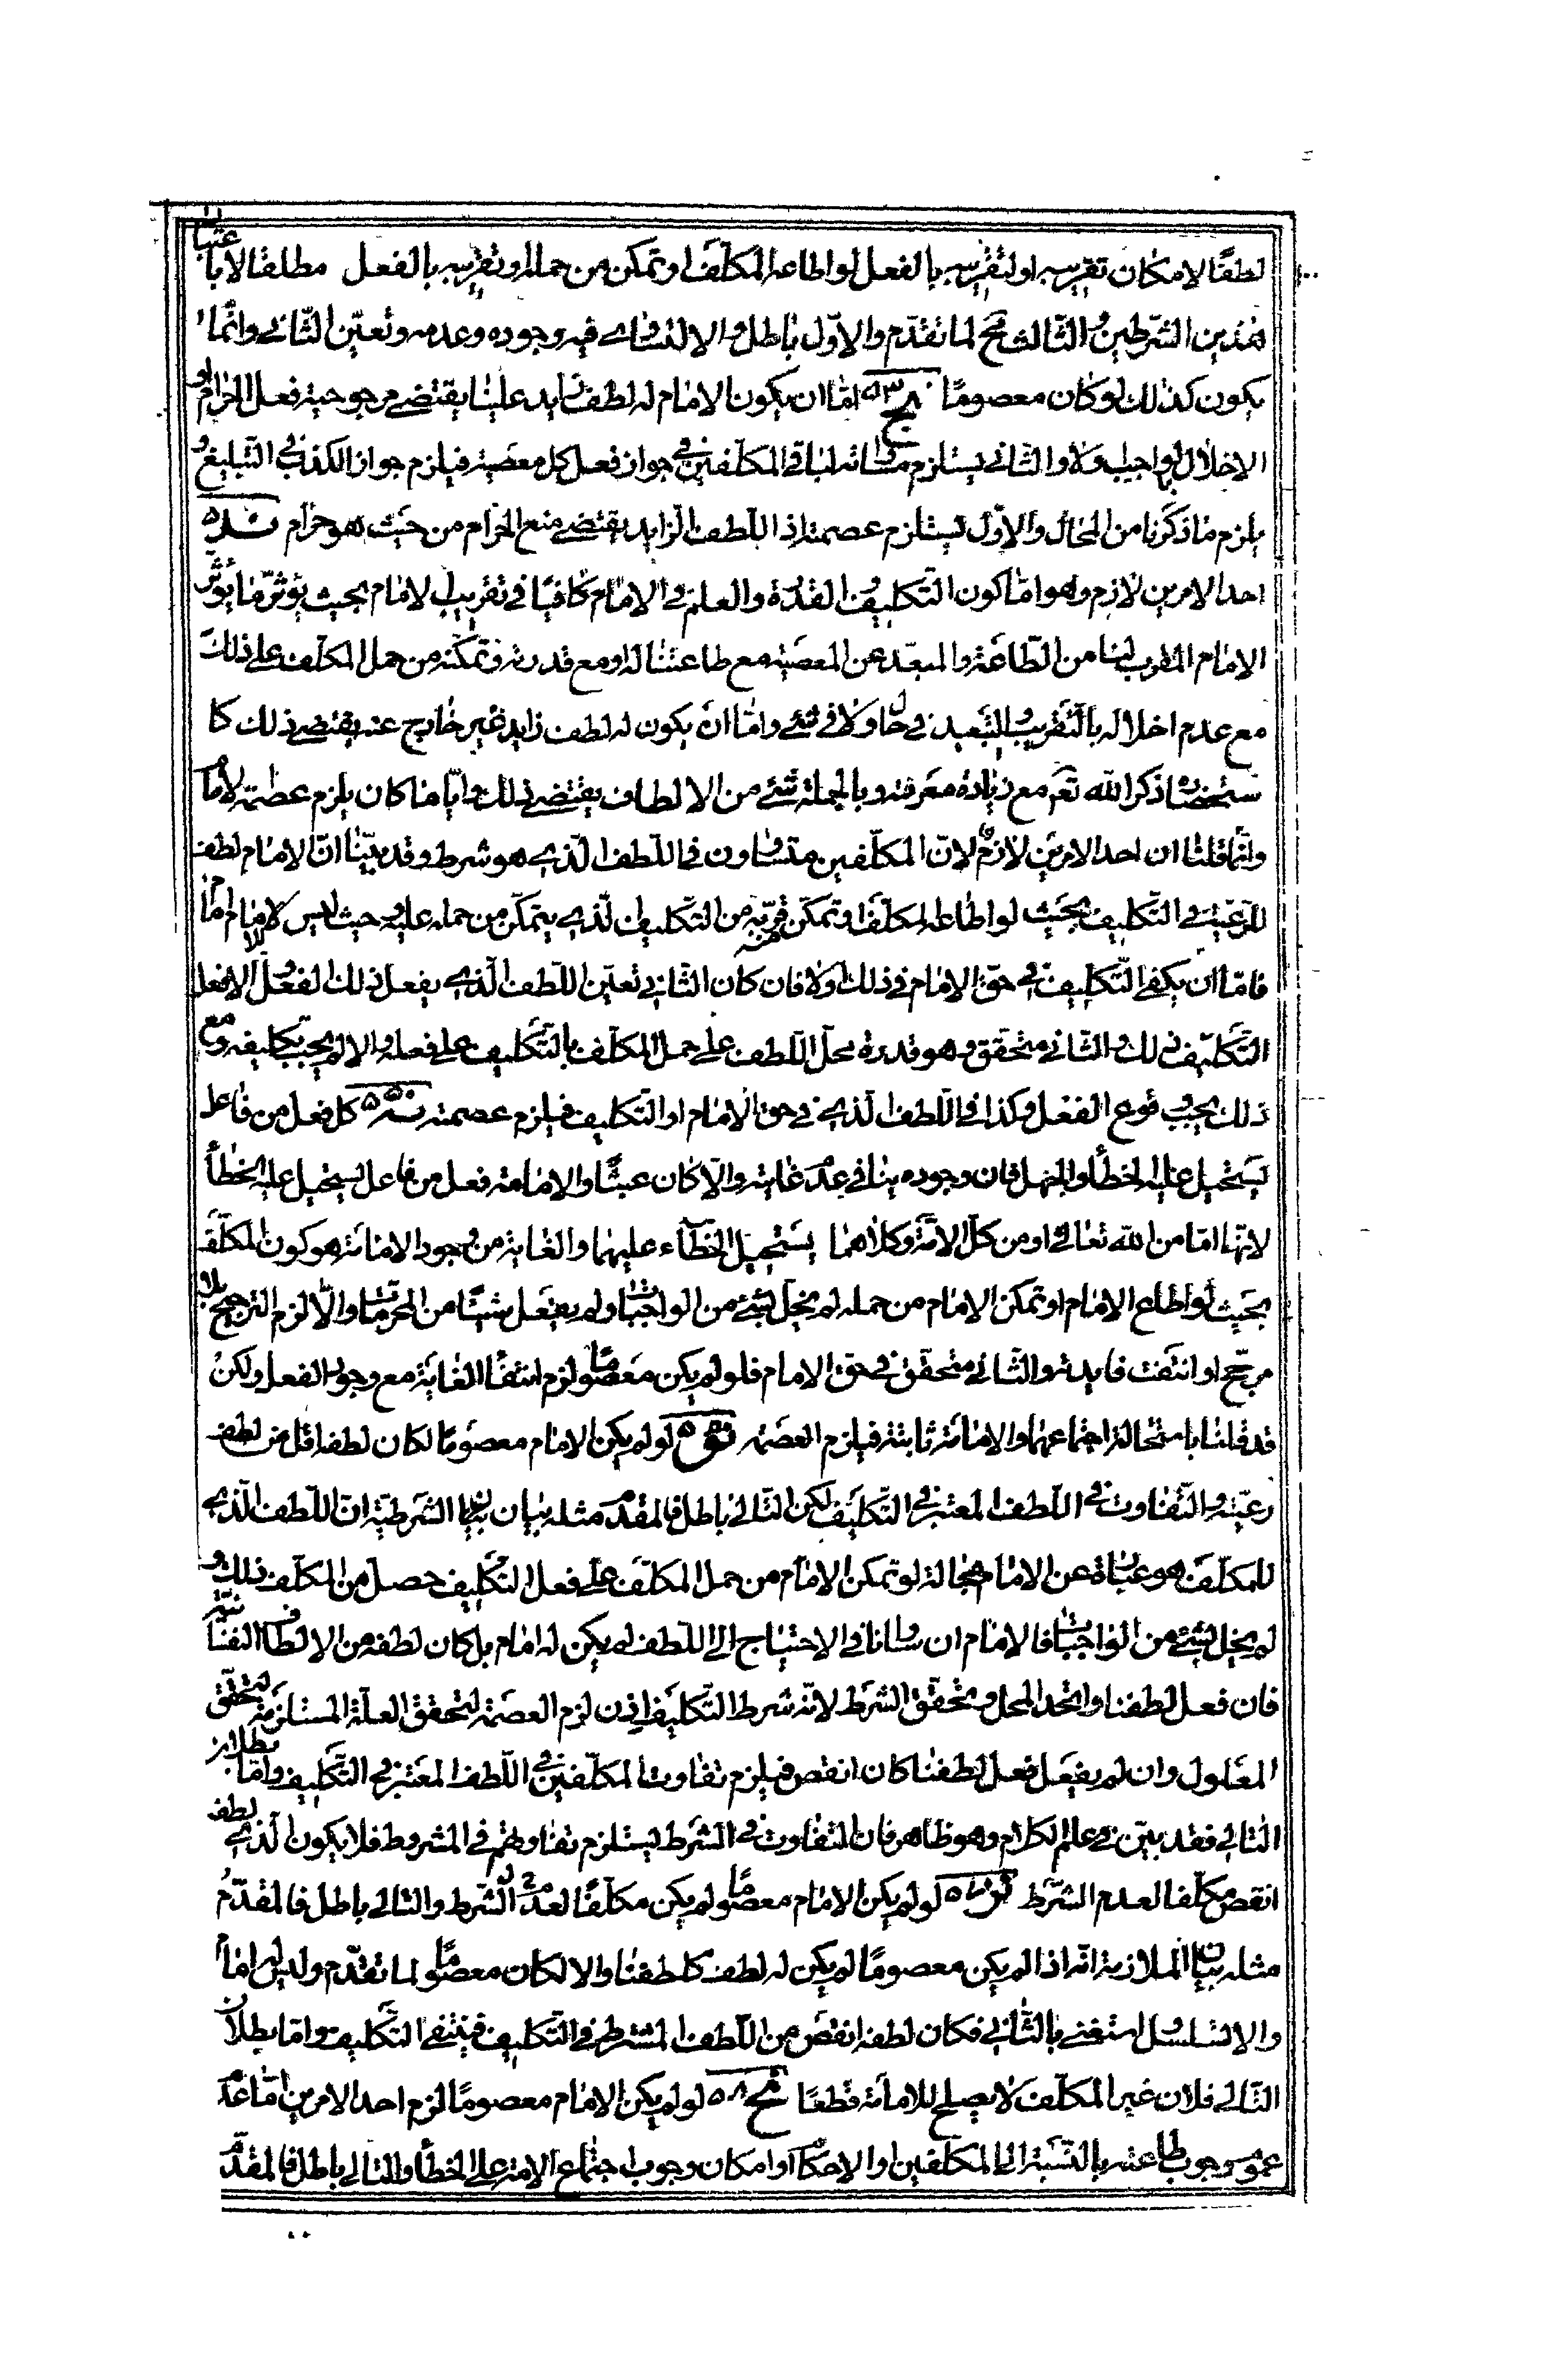 لطفًا لامكان تقريبه او لتقريبه بالفعل لو اطاعه المكلّف او تمكّن من حمله او تقريبه بالفعل مطلقا لا باعتبار
هذين الشرطين والثالث مح لما تقدّم والاوّل باطل والا لتساوى فيه وجوده وعدمه وتعيّن الثاني وانّما
يكون كذلك لو كان معصومًا نج ٥٣ امّا ان يكون الامام له لطف زايد علينا يقتضى مرجوحية فعل الحرام او
الاخلال بواجب اولا والثاني يستلزم مساواته لباقي المكلّفين في جواز فعل كل معصية فيلزم جواز الكذب في التبليغ و
يلزم ما ذكرنا من المحال والاوّل يستلزم عصمته اذ اللطف الزايد يقتضى منع الحرام من حيث هو حرام ند ٥٤
احد الامرين لازم وهو امّا كون التكليف والقدرة والعلم في الامام كافيًا في تقريب الامام بحيث يؤثّر ما يؤثّر
الامام المقرب لنا من الطّاعة والمبعّد عن المعصية مع طاعتنا له او مع قدرته وتمكّنه من حمل المكلّف على ذلك
مع عدم اخلاله بالتّقريب والتبعيد في حال ولا في شئ وامّا ان يكون له لطف زايد غير خارج عنه يقتضى ذلك كا
ستحضار ذكر الله تعم مع زيادة معرفته وبالجملة شئ من الالطاف يقتضى ذلك وايّاما كان يلزم عصمة الامام
وانّما قلنا ان احد الامرين لازم لانّ المكلّفين متساوون في اللّطف الّذى هو شرط وقد بيّنا انّ الامام لطف
للرعيّة في التكليف بحيث لو اطاعه المكلّف او تمكّن قرّبه من التكليف الّذى يتمكّن من حمله عليه وحيث ليس للامام امام اخر
فامّا ان يكفى التّكليف في حقّ الامام في ذلك اولا فان كان الثاني تعيّن اللّطف الّذى يفعل ذلك الفعل والا لافعل
التّكليف ذلك والثاني متحقق وهو قدرة محل اللطف على حمل المكلّف بالتكليف على فعله والا لم يجب تكليفه ومع
ذلك يجب وقوع الفعل وكذا في اللّطف الّذى في حق الامام او التكليف فيلزم عصمته نه ٥٥ كل فعل من فاعل
يستحيل عليه الخطأ والجهل فان وجوده ينافي عدم غايته والّا كان عبثًا والامامة فعل من فاعل يستحيل عليه الخطأ
لانّها امّا من الله تعالى او من كلّ الامّة وكلاهما يستحيل الخطاء عليهما والغاية من وجود الامامة هو كون المكلّف
بحيث لو اطاع الامام او تمكن الامام من حمله لم يخلّ بشئ من الواجبات ولم يفعل شيئًا من المحرّمات والّا لزم الترجيح بلا
مرجّح او انتفت فايدته والثاني متحقق في حقّ الامام فلو لم يكن معصومًا لزم انتفاء الغاية مع وجود الفعل ولكن
قد قلنا باستحالة اجتماعهما والامامة ثابتة فيلزم العصمة نو ٥٦ لو لم يكن الامام معصومًا لكان لطفه اقل من لطف
رعيّته والتفاوت في اللّطف المعتبر في التكليف لكن التالي باطل فالمقدّم مثله بيان الشرطيّة انّ اللّطف الّذى
للمكلّف هو عبارة عن الامام بحالة لو تمكن الامام من حمل المكلّف على فعل التكليف حصل من المكلّف ذلك و
لم يخل بشئ من الواجبات فالامام ان ساوانا في الاحتياج الى اللّطف لم يكن له امام بل كان لطفه من الالطاف النفسانيّة
فان فعل لطفنا واتّحد المحل وتحقق الشرط لانّه شرط التّكليف اذن لزم العصمة لتحقق العلّة المستلزمة لتحقّق
المعلول وان لم يفعل فعل لطفنا كان انقص فيلزم تفاوت المكلّفين في اللّطف المعتبر في التّكليف وامّا بطلان
التالي فقد بيّن في علم الكلام وهو ظاهر فان التفاوت في الشرط يستلزم تفاوتهم في المشروط فلا يكون الّذى لطفه
انقص مكلّفا لعدم الشرط نز ٥٧ لو لم يكن الامام معصومًا لم يكن مكلّفًا لعدم الشّرط والتالي باطل فالمقدّم
مثله بيان الملازمة انّه اذا لم يكن معصومًا لم يكن له لطف كلطفنا والا لكان معصومًا لما تقدّم وليس له امام
والا لتسلسل واستغنى بالثاني فكان لطفه انقص من اللّطف المشترط في التّكليف فينتفى التكليف وامّا بطلان
التّالي فلان غير المكلّف لا يصلح للامامة قطعًا نح ٥٨ لو لم يكن الامام معصومًا لزم احد الامرين امّا عدم
عموم وجوب طاعته بالنّسبة الى المكلّفين او الاحكام او امكان وجوب اجتماع الامة على الخطأ والتالي باطل فالمقدّم